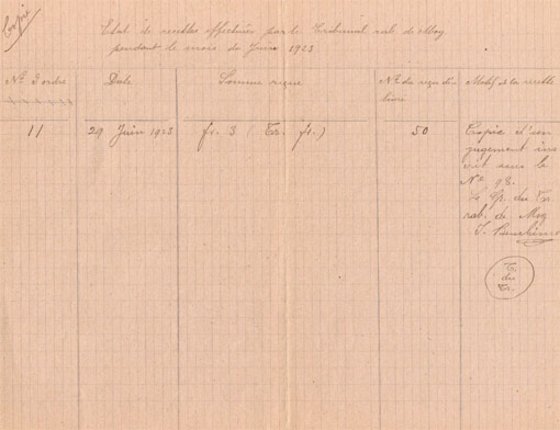 Copie
Etat de recettes effectuées par le Tribunal rab. de Mog
pendant le mois de Juin 1923
No. d'ordre
Date
Somme reçue
No. du reçu dé-
livré
Motif de la recette
11
29 Juin 1923
fr. 3 ( Tr. fr.)
50
Copie d'un
jugement ins
crit sous le
No. 98.
Le Gr. du Tr.
rab. de Mog
T.
du
Tr.